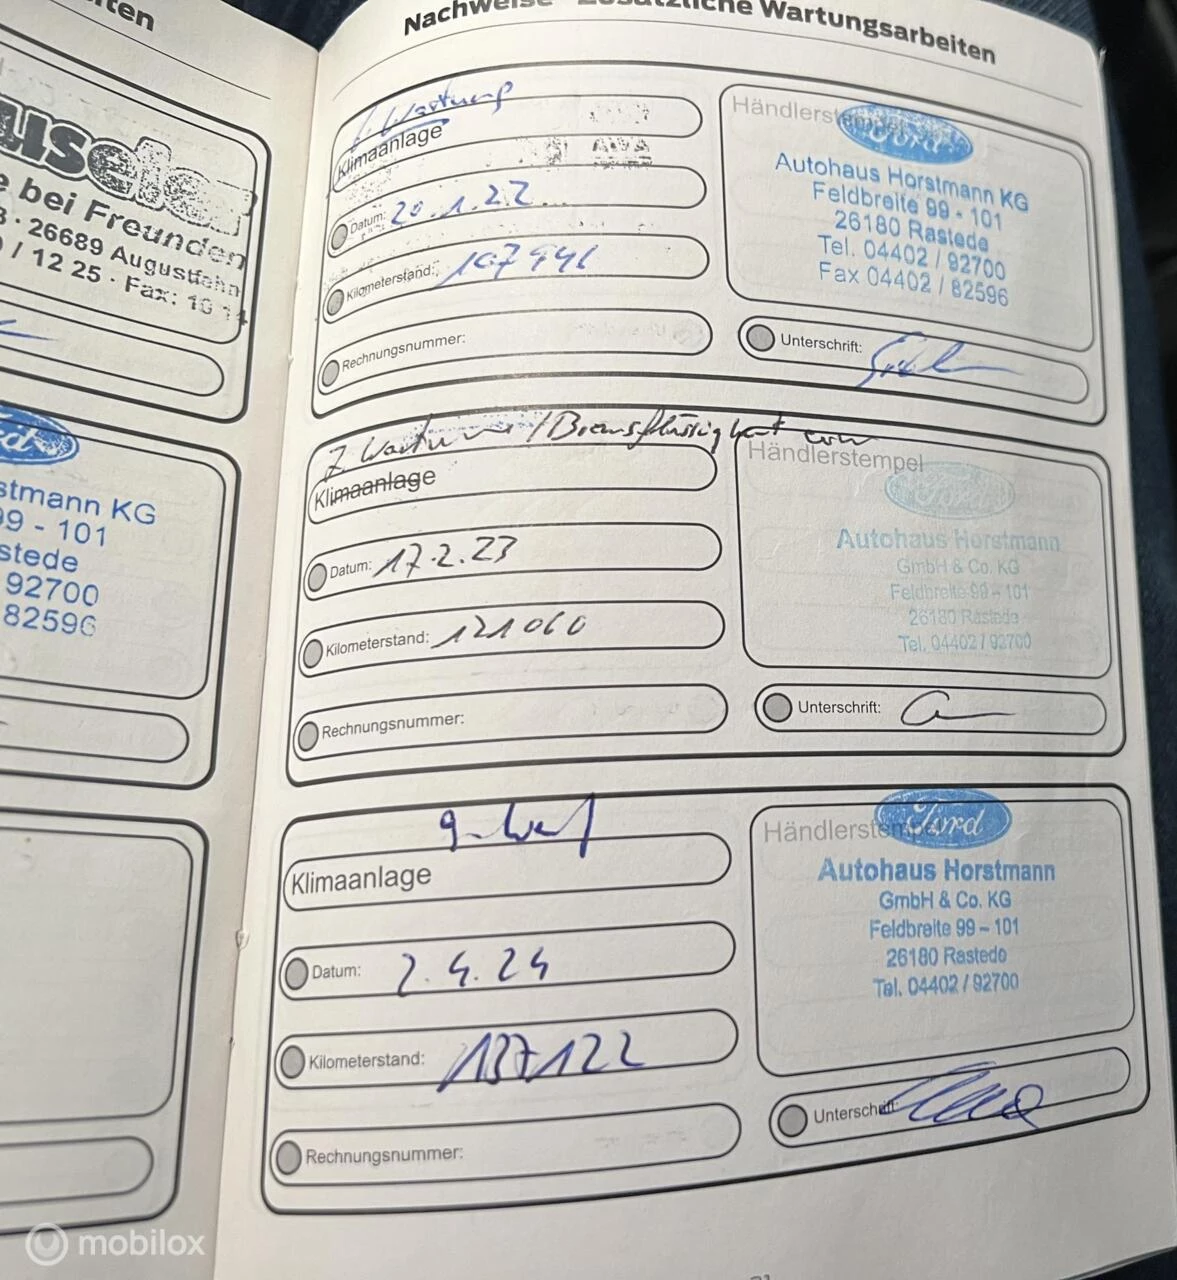 ten
useler
e bei Freunden
26689 Augustfehn
/ 12 25 · Fax:
stmann KG
99 - 101
stede
92700
82596
Nachweise Zusätzliche Wartungsarbeiten
Wartung
Klimaanlage
Datum: 20.1.22
Kilometerstand: 107441
Rechnungsnummer:
Händlerstempel
Ford
Autohaus Horstmann KG
Feldbreite 99 - 101
26180 Rastede
Tel. 04402 / 92700
Fax 04402 / 82596
Unterschrift:
Wartung / Bremsflüssigkeit
Klimaanlage
Datum: 17.2.23
Kilometerstand: 121060
Rechnungsnummer:
Händlerstempel
Ford
Autohaus Horstmann
GmbH & Co. KG
Feldbreite 99 – 101
26180 Rastede
Tel. 04402 / 92700
Unterschrift:
Klimaanlage
Datum: 2.4.24
Kilometerstand: 137122
Rechnungsnummer:
Händlerstempel
Ford
Autohaus Horstmann
GmbH & Co. KG
Feldbreite 99 – 101
26180 Rastede
Tel. 04402 / 92700
Unterschrift:
mobilox